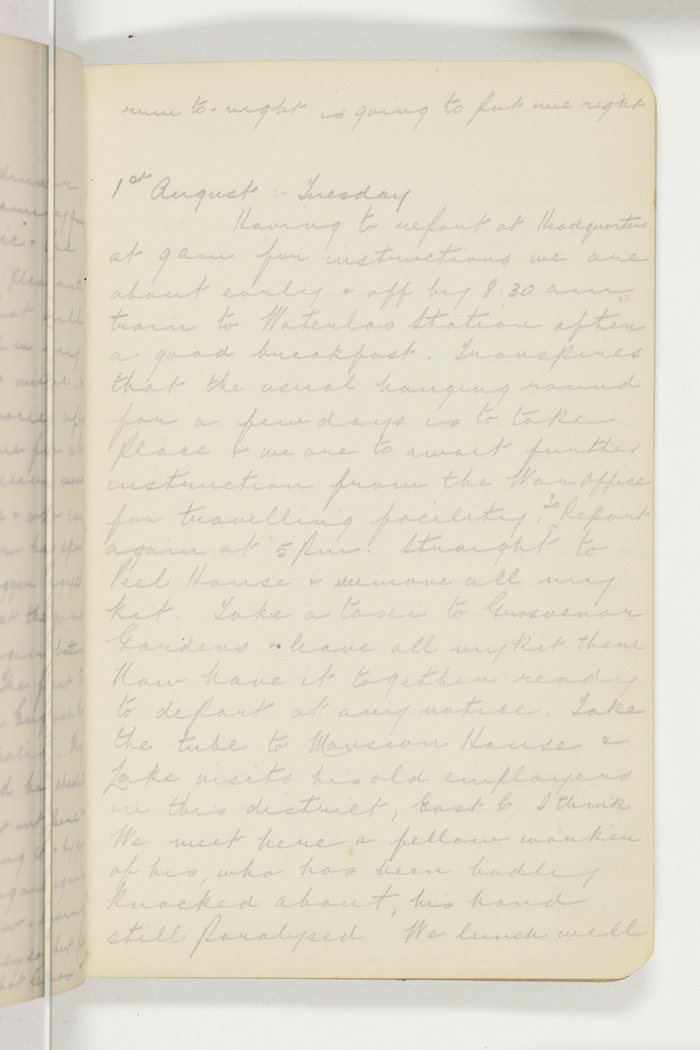 rum to-night is going to put me right
1st August :- Tuesday
Having to report at Headquarters
at 9am for instructions we are
about early & off by 8.30 am
train to Waterloo Station after
a good breakfast. Transpires
that the usual hanging round
for a few days is to take
place & we are to await further
instruction from the War Office
for travelling facility. To Report
again at 5 Pm. Straight to
Peel House & remove all my
kit. Take a taxi to Grosvenor
Gardens & leave all my kit there
Now have it together ready
to depart at any notice. Take
the tube to Mansion House &
Lake visits his old employers
in this district, East C. I think
We meet here a fellow worker
of his, who has been badly
knocked about, his hand
still paralysed. We lunch well